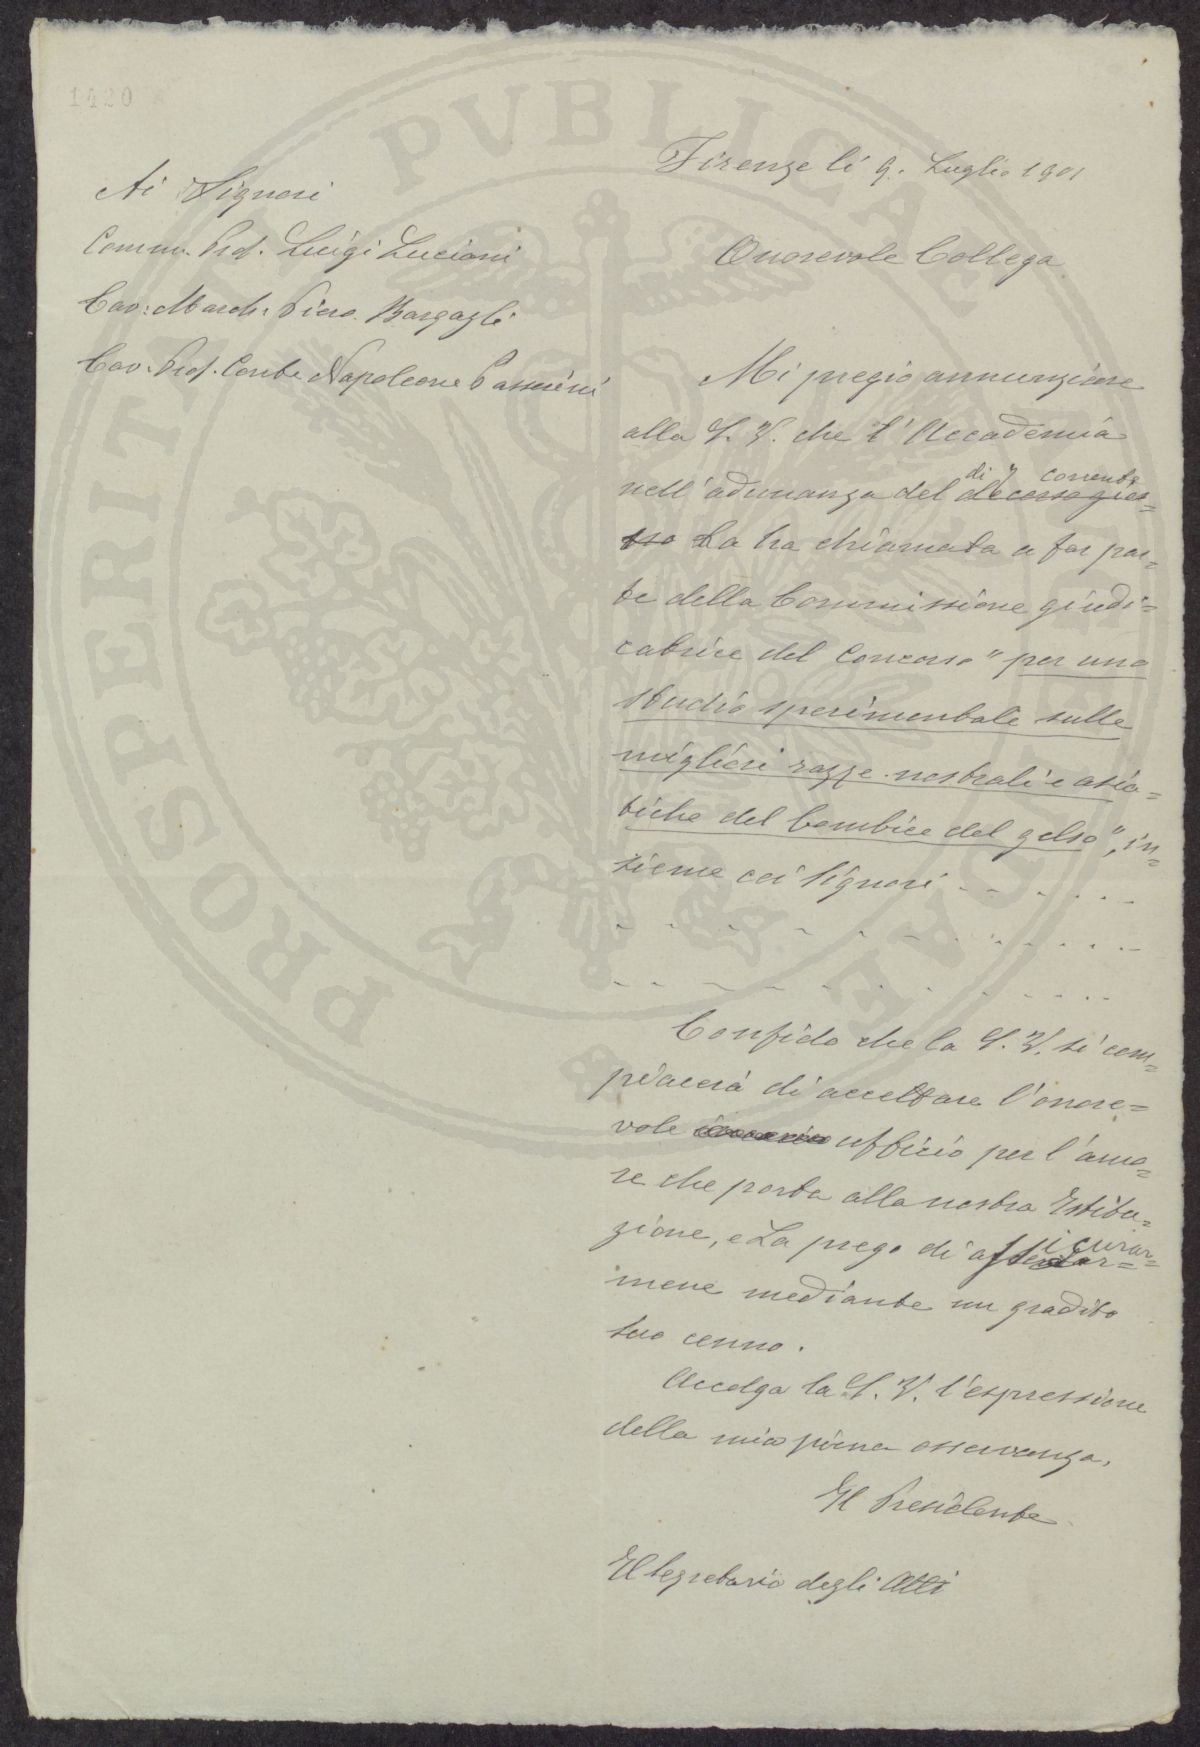 1420
Firenze lì 9. Luglio 1901
Ai Signori
Comm. Prof. Luigi Luciani
Cav: March: Piero Bargagli
Cav. Prof. Conte Napoleone Passerini
Onorevole Collega
Mi pregio annunziare
alla S. V. che l'Accademia
di 7 corrente
nell'adunanza del decorso gior=
no La ha chiamata a far par=
te della Commissione giudi=
catrice del Concorso "per uno
studio sperimentale sulle
migliori razze nostrali e asia=
tiche del bombice del gelso", in=
sieme coi Signori - - - - - -
Confido che la S. V. si com=
piacerà di accettare l'onore=
vole ufficio per l'amo=
re che porta alla nostra Istitu=
zione, e La prego di assicurar=
mene mediante un gradito
suo cenno.
Accolga la S. V. l'espressione
della mia piena osservanza.
Il Presidente
Il Segretario degli Atti
PROSPERITATI PVBLICAE AVGENDAE